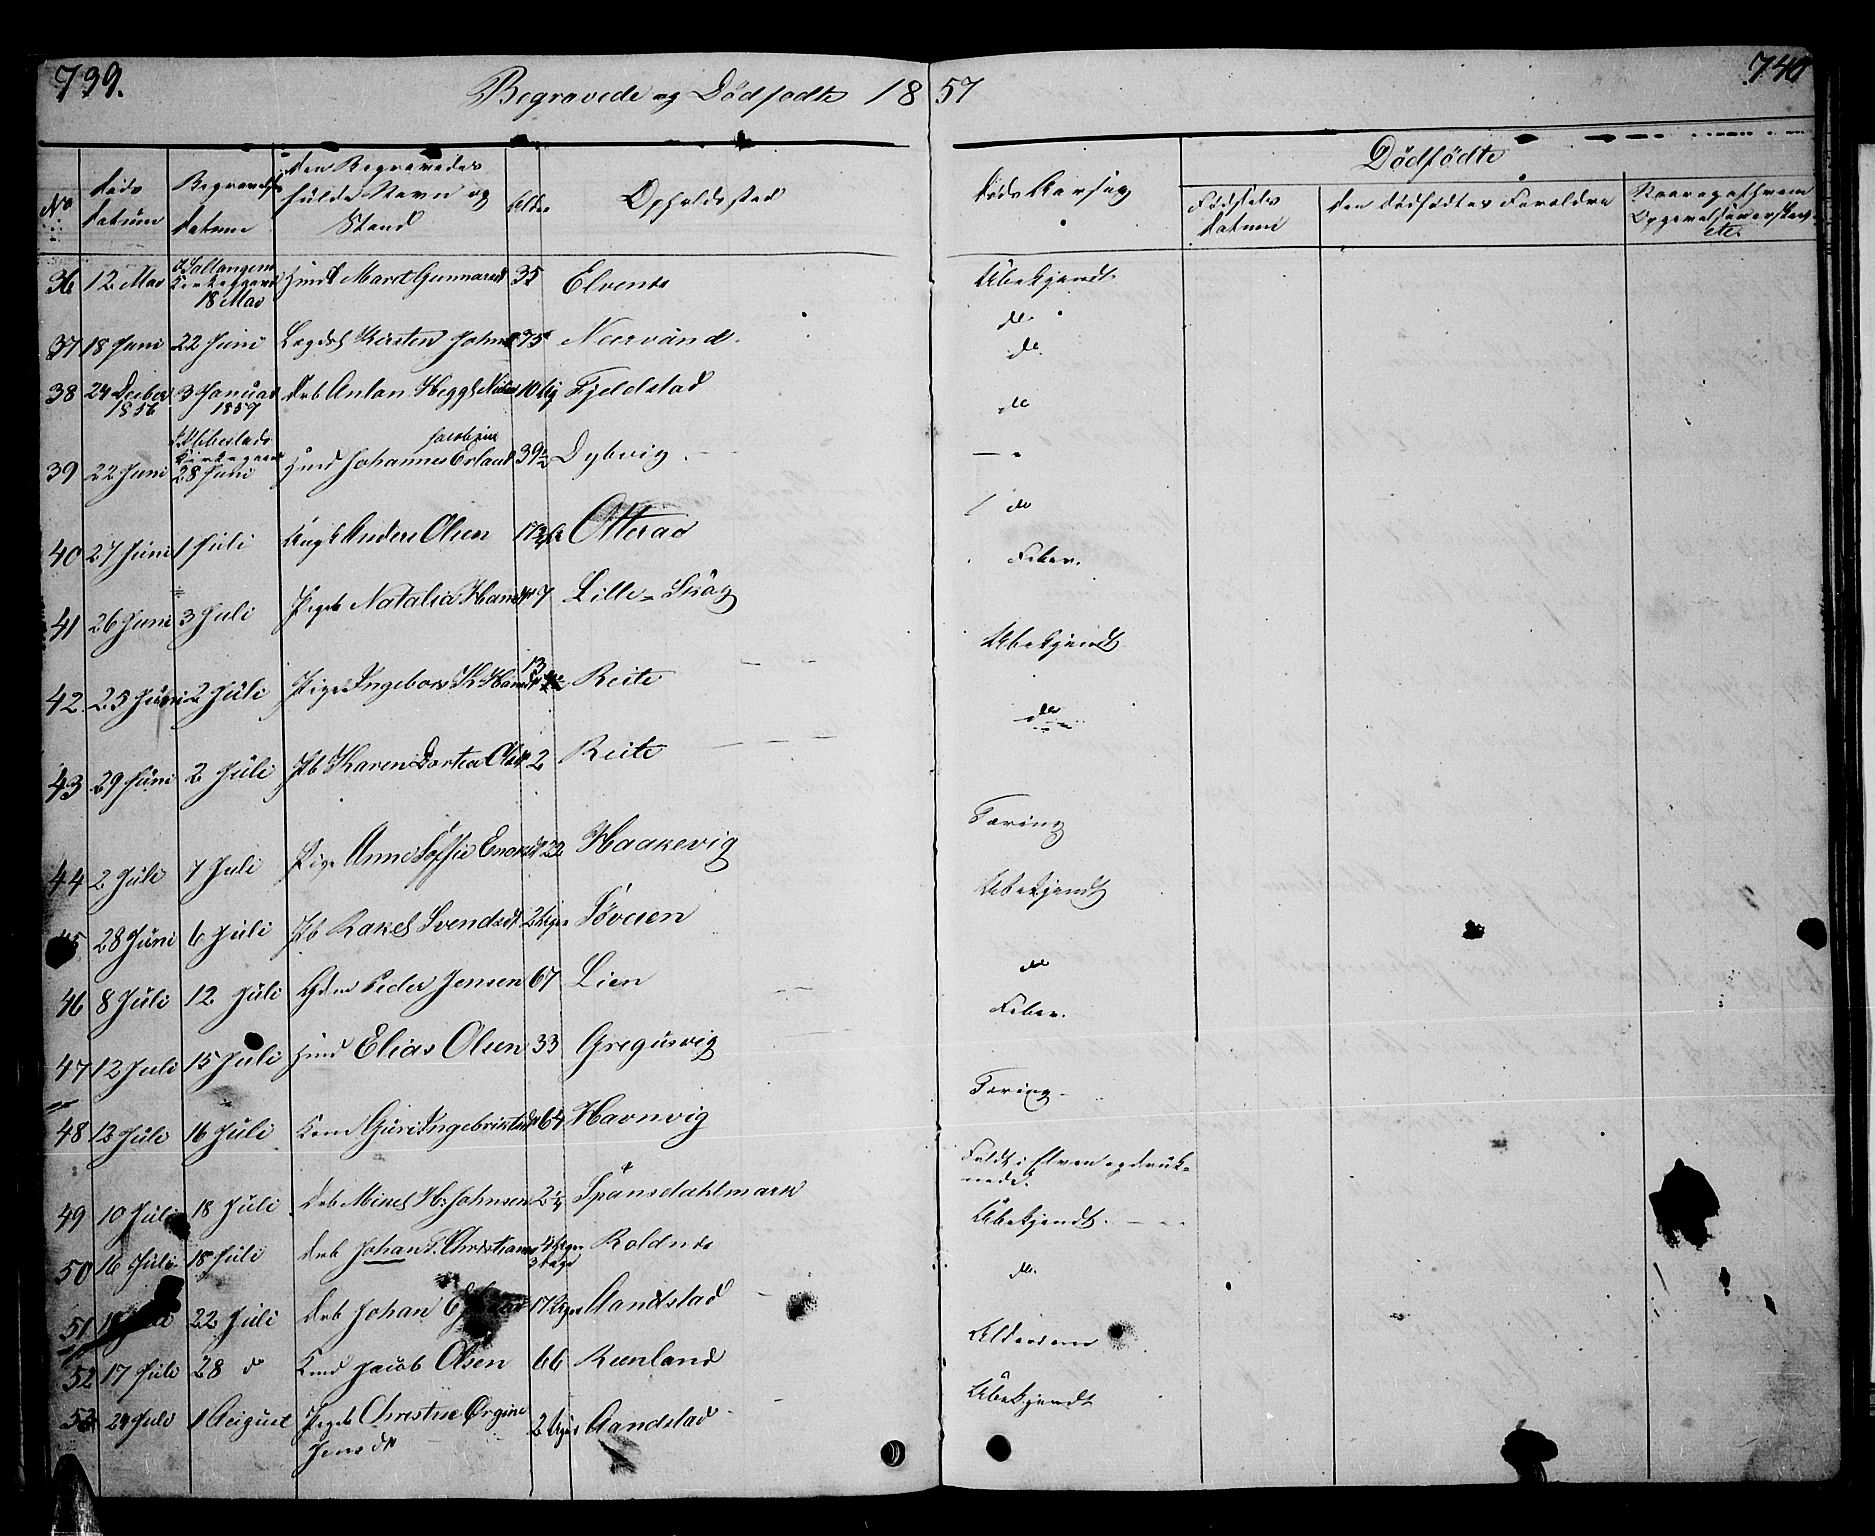 739. 740
Begravede og Dødfødte 1857
No Døds datum Begravelses datum Den Begravedes fulde Navn og Stand Alder Opholdssted Døds Aarsag Dødfødte
Fødsels datum Den dødfødtes Forældre
etc.
36 12 Mai Kirkegaard 18 Mai Marit Gunnarsd 35 Elvenes Ubekjendt
37 18 Juni 22 Juni Lægdsl Kirsten Johns 75 Neervand do
38 24 Decber 1856 3 Januar 1857 Drb Antan 10 Fjeldstad do
39 Ibbestads Kirkegaard 22 Juni 28 Juni Johannes Erland Jacobsen 39 1/2 Dybvig do
40 27 Juni 1 Juli Ungk Anders Olsen 17 Otteraa do
41 26 Juni 3 Juli Pigeb Natalia Hansd 7 Lille-Skog Feber.
42 25 Juni 2 Juli Pige Ingebor K Hansd 13 Reite Ubekjendt
43 29 Juni 2 Juli Pb Karen Dortea Olsd 2 Reite do
44 2 Juli 7 Juli Pige Anne Soffie Enoksd 22 Haakevig Tæring
45 28 Juni 6 Juli Pb Rakel Svendsd 2 Uger Søveien Ubekjendt
46 8 Juli 12 Juli Gdm Peder Jensen 67 Lien do
47 12 Juli 15 Juli Elias Olsen 33 Gregusvig Feber.
48 12 Juli 16 Juli Kone Guri Ingebrigtsd 64 Havnvig Tæring
49 10 Juli 18 Juli Drb Mikel H: Johnsen 2 1/4 Spansdahlmark Faldt i Elven og druknede.
50 16 Juli 18 Juli Drb Johan Christians 4 Uger 3 Dage Roldnes Ubekjendt.
51 22 Juli Drb Johan 17 Uger Aandstad do.
52 17 Juli 28 do Jacob Olsen 66 Reenland Alderdom
53 24 Juli 1 August Pigeb Christine Ørgine Jensdr 2 Uger Aandstad Ubekjendt